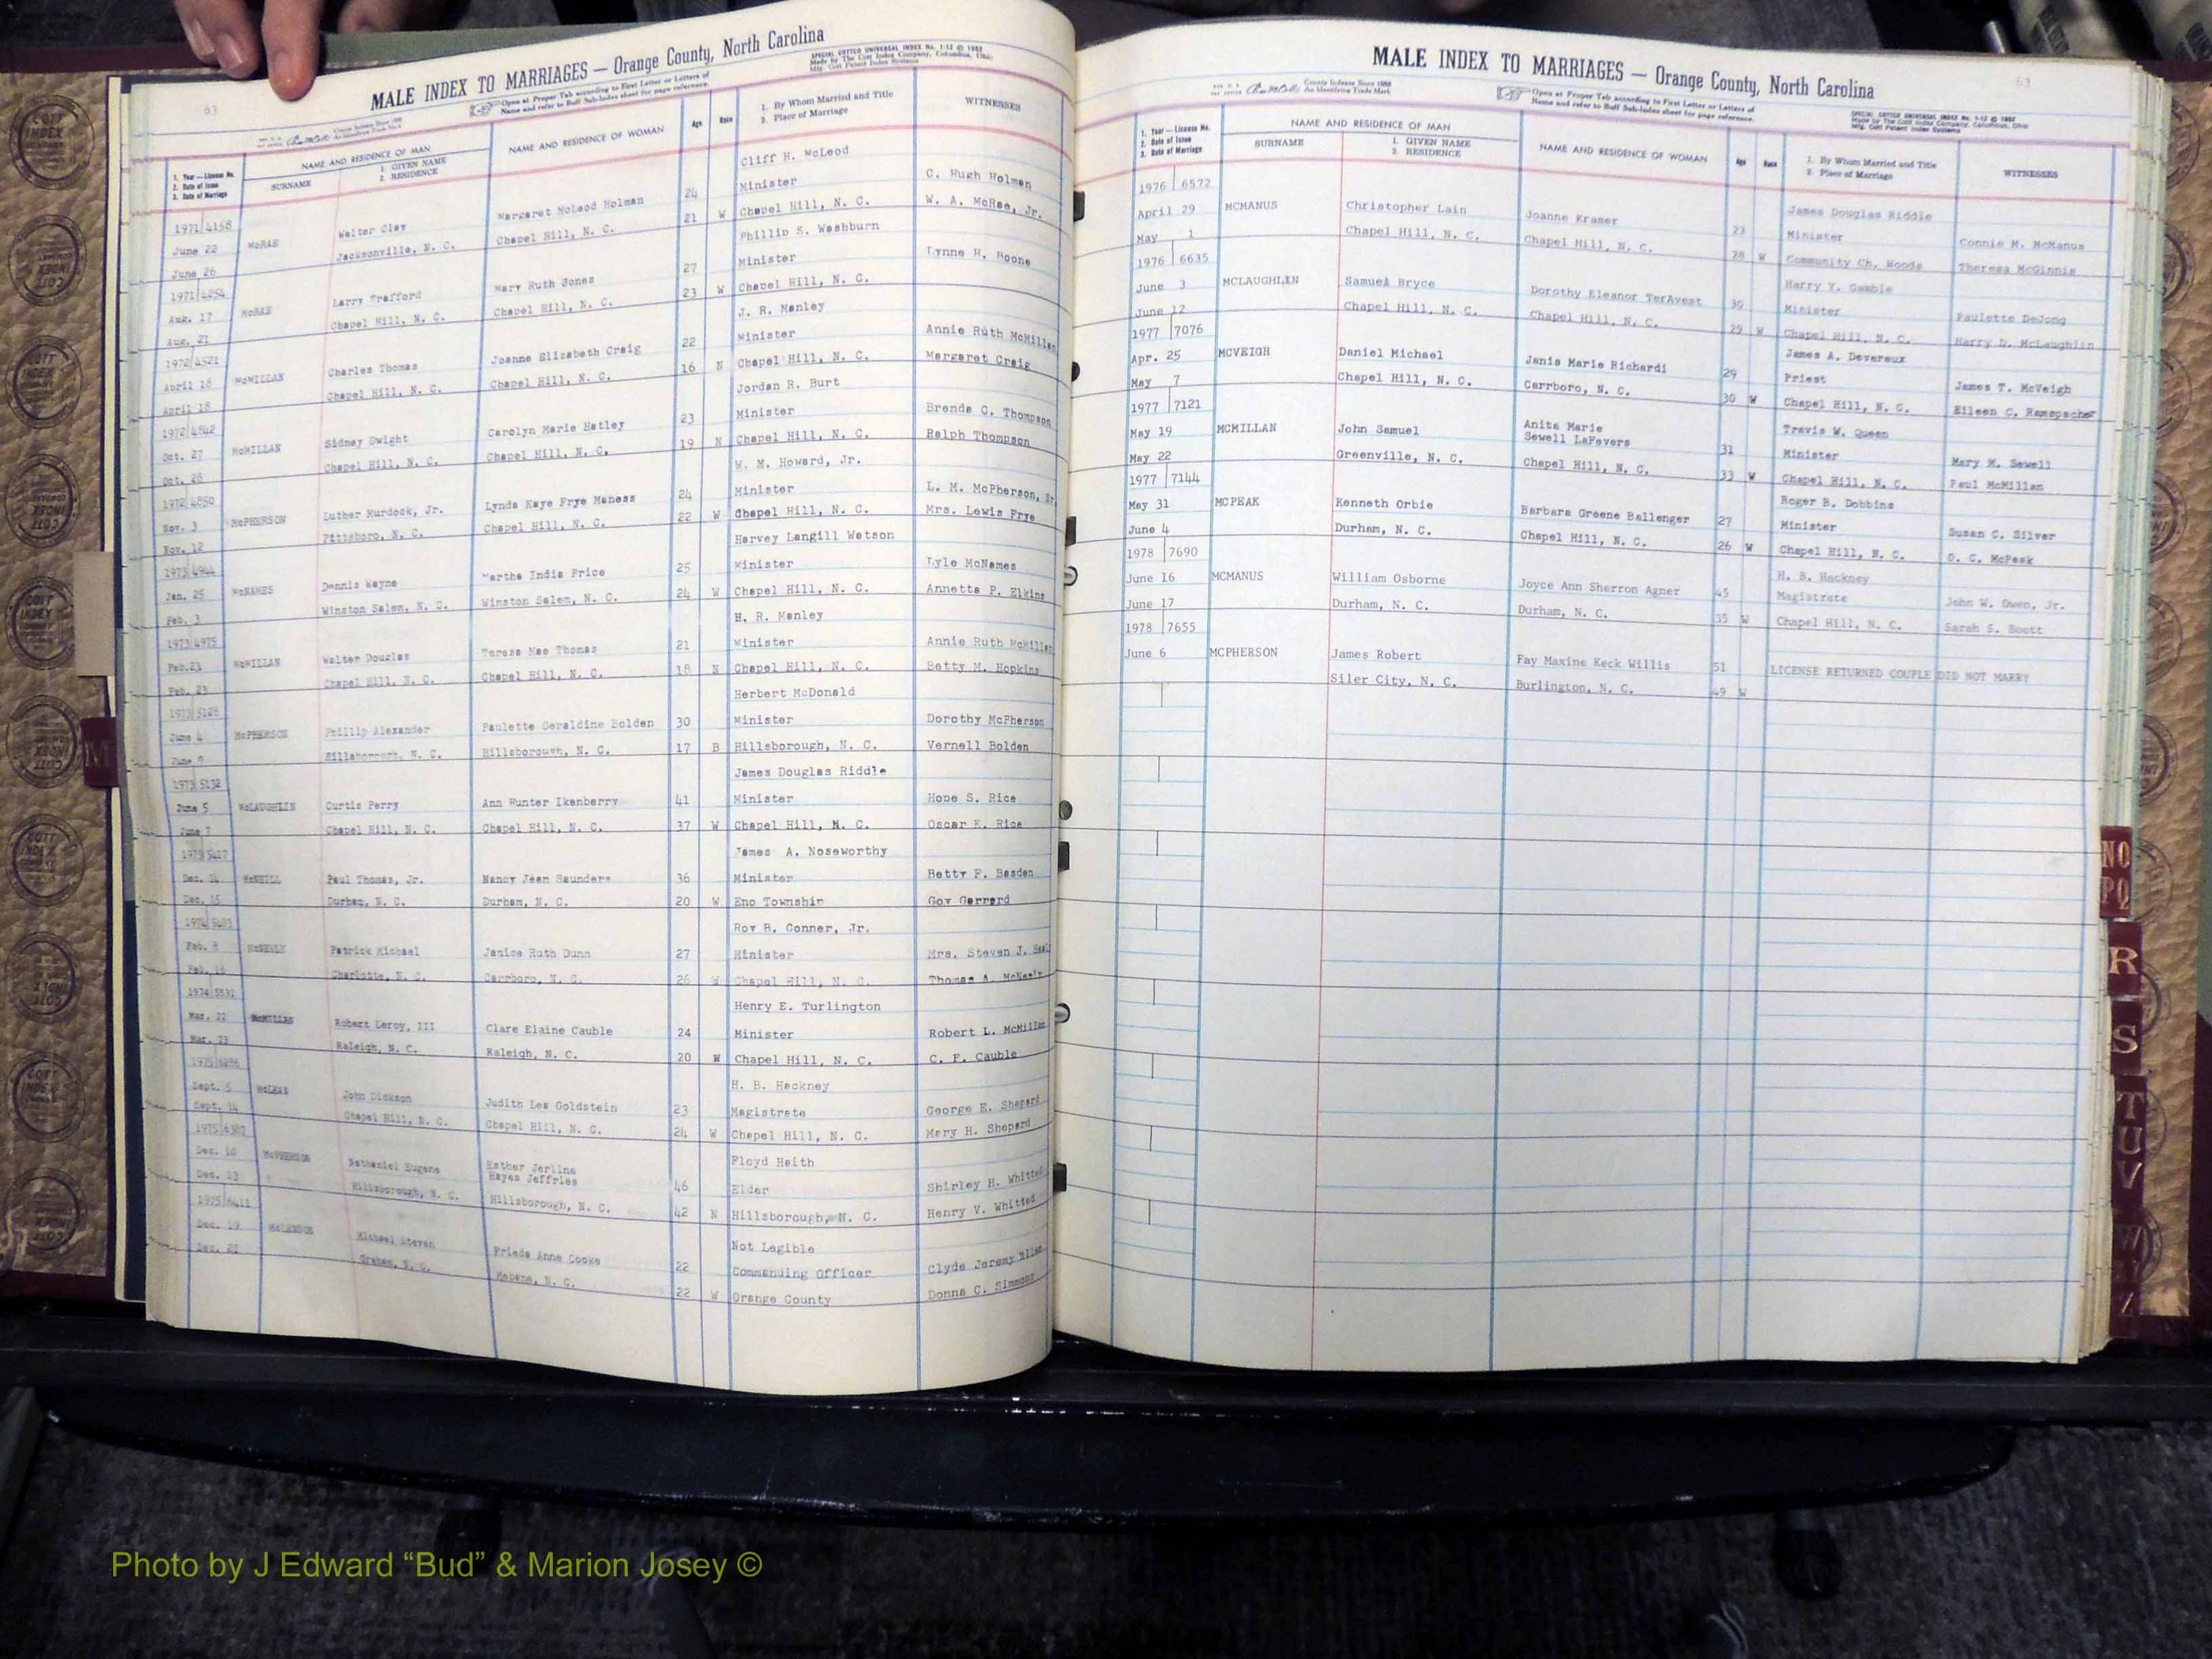 63
MALE INDEX TO MARRIAGES — Orange County, North Carolina
Open at Proper Tab according to First Letter or Letters of
Name and refer to Buff Sub-Index sheet for page reference.
SPECIAL COTTCO UNIVERSAL INDEX No. 1-12 © 1952
Made by The Cott Index Company, Columbus, Ohio
Mfg. Cott Patent Index Systems
1. Year — License No.
2. Date of Issue
3. Date of Marriage
NAME AND RESIDENCE OF MAN
SURNAME
1. GIVEN NAME
2. RESIDENCE
NAME AND RESIDENCE OF WOMAN
Age
Race
1. By Whom Married and Title
2. Place of Marriage
WITNESSES
1971 4158 Cliff H. McLeod
June 22 McRAE Walter Clay Margaret McLeod Holman 24 Minister C. Hugh Holman
June 26 Jacksonville, N. C. Chapel Hill, N. C. 21 W Chapel Hill, N. C. W. A. McRae, Jr.
1971 4254 Phillip S. Washburn
Aug. 17 McRAE Larry Trafford Mary Ruth Jones 27 Minister Lynne H. Hoone
Aug. 21 Chapel Hill, N. C. Chapel Hill, N. C. 23 W Chapel Hill, N. C.
1972 4521 J. R. Manley
April 18 McMILLAN Charles Thomas Joanne Elizabeth Craig 22 Minister Annie Ruth McMillan
April 18 Chapel Hill, N. C. Chapel Hill, N. C. 16 N Chapel Hill, N. C. Margaret Craig
1972 4842 Jordan R. Hurt
Oct. 27 McMILLAN Sidney Dwight Carolyn Marie Hatley 23 Minister Brenda C. Thompson
Oct. 28 Chapel Hill, N. C. Chapel Hill, N. C. 19 N Chapel Hill, N. C. Ralph Thompson
1972 4850 W. M. Howard, Jr.
Nov. 3 McPHERSON Luther Murdock, Jr. Lynda Kaye Frye Maness 24 Minister L. M. McPherson, Sr.
Nov. 12 Pittsboro, N. C. Chapel Hill, N. C. 22 W Chapel Hill, N. C. Mrs. Lewis Frye
1973 4944 Harvey Langill Watson
Jan. 25 McNAMES Dennis Wayne Martha India Price 25 Minister Lyle McNames
Feb. 3 Winston Salem, N. C. Winston Salem, N. C. 24 W Chapel Hill, N. C. Annette P. Elkins
1973 4975 H. R. Manley
Feb. 23 McMILLAN Walter Douglas Teresa Mae Thomas 21 Minister Annie Ruth McMillan
Feb. 23 Chapel Hill, N. C. Chapel Hill, N. C. 18 N Chapel Hill, N. C. Betty M. Hopkins
1973 5128 Herbert McDonald
June 4 McPHERSON Phillip Alexander Paulette Geraldine Bolden 30 Minister Dorothy McPherson
June 9 Hillsborough, N. C. Hillsborough, N. C. 17 B Hillsborough, N. C. Vernell Bolden
1973 5132 James Douglas Riddle
June 5 McLAUGHLIN Curtis Perry Ann Hunter Ikenberry 41 Minister Hope S. Rice
June 7 Chapel Hill, N. C. Chapel Hill, N. C. 37 W Chapel Hill, N. C. Oscar K. Rice
1973 5417 James A. Noseworthy
Dec. 14 McNEILL Paul Thomas, Jr. Nancy Jean Saunders 36 Minister Betty F. Basden
Dec. 15 Durham, N. C. Durham, N. C. 20 W Eno Township Goy Garrard
1974 Roy B. Conner, Jr.
Feb. 8 McNEELY Patrick Michael Janice Ruth Dunn 27 Minister Mrs. Steven J.
Feb. 16 Charlotte, N. C. Carrboro, N. C. 26 W Chapel Hill, N. C. Thomas A. McNeely
1974 5531 Henry E. Turlington
Mar. 22 McMILLAN Robert Leroy, III Clare Elaine Cauble 24 Minister Robert L. McMillan
Mar. 23 Raleigh, N. C. Raleigh, N. C. 20 W Chapel Hill, N. C. C. F. Cauble
1975 6256 H. B. Hackney
Sept. 5 McLEAN John Dickson Judith Lea Goldstein 23 Magistrate George E. Shepard
Sept. 14 Chapel Hill, N. C. Chapel Hill, N. C. 24 W Chapel Hill, N. C. Mary H. Shepard
1975 6387 Floyd Haith
Dec. 10 McPHERSON Nathaniel Eugene Esther Jerline Hayes Jeffries 46 Elder Shirley H. Whitted
Dec. 13 Hillsborough, N. C. Hillsborough, N. C. 42 N Hillsborough, N. C. Henry V. Whitted
1975 6411 Not Legible
Dec. 19 Michael Stevan Frieda Anne Cooke 22 Commanding Officer Clyde Jeremy
Dec. 21 Graham, N. C. Mebane, N. C. 22 W Orange County Donna C. Simmons
63
MALE INDEX TO MARRIAGES — Orange County, North Carolina
County Indexes Since 1888
An Identifying Trade Mark
Open at Proper Tab according to First Letter or Letters of
Name and refer to Buff Sub-Index sheet for page reference.
SPECIAL COTTCO UNIVERSAL INDEX No. 1-12 © 1952
Made by The Cott Index Company, Columbus, Ohio
Mfg. Cott Patent Index Systems
1. Year — License No.
2. Date of Issue
3. Date of Marriage
NAME AND RESIDENCE OF MAN
SURNAME
1. GIVEN NAME
2. RESIDENCE
NAME AND RESIDENCE OF WOMAN
Age
Race
1. By Whom Married and Title
2. Place of Marriage
WITNESSES
1976 6572 James Douglas Riddle
April 29 MCMANUS Christopher Lain Joanne Kramer 23 Minister Connie M. McManus
May 1 Chapel Hill, N. C. Chapel Hill, N. C. 28 W Community Ch. Woods Theresa McGinnis
1976 6635 Harry Y. Gamble
June 3 MCLAUGHLIN Samuel Bryce Dorothy Eleanor TerAvest 30 Minister Paulette DeJong
June 12 Chapel Hill, N. C. Chapel Hill, N. C. 29 W Chapel Hill, N. C. Harry D. McLaughlin
1977 7076 James A. Devereux
Apr. 25 MCVEIGH Daniel Michael Janis Marie Richardi 29 Priest James T. McVeigh
May 7 Chapel Hill, N. C. Carrboro, N. C. 30 W Chapel Hill, N. C. Eileen C. Ramspacher
1977 7121 Travis W. Queen
May 19 MCMILLAN John Samuel Anita Marie Sewell LaFevers 31 Minister Mary M. Sewell
May 22 Greenville, N. C. Chapel Hill, N. C. 33 W Chapel Hill, N. C. Paul McMillan
1977 7144 Roger B. Dobbins
May 31 MCPEAK Kenneth Orbie Barbara Greene Ballenger 27 Minister Susan C. Silver
June 4 Durham, N. C. Chapel Hill, N. C. 26 W Chapel Hill, N. C. O. C. McPeak
1978 7690 H. B. Hackney
June 16 MCMANUS William Osborne Joyce Ann Sherron Agner 45 Magistrate John W. Owen, Jr.
June 17 Durham, N. C. Durham, N. C. 35 W Chapel Hill, N. C. Sarah S. Boott
1978 7655
June 6 MCPHERSON James Robert Fay Maxine Keck Willis 51 LICENSE RETURNED COUPLE DID NOT MARRY
Siler City, N. C. Burlington, N. C. 49 W
M
NO
PQ
R
S
T
U
V
W
COTT
INDEX
Photo by J Edward “Bud” & Marion Josey ©